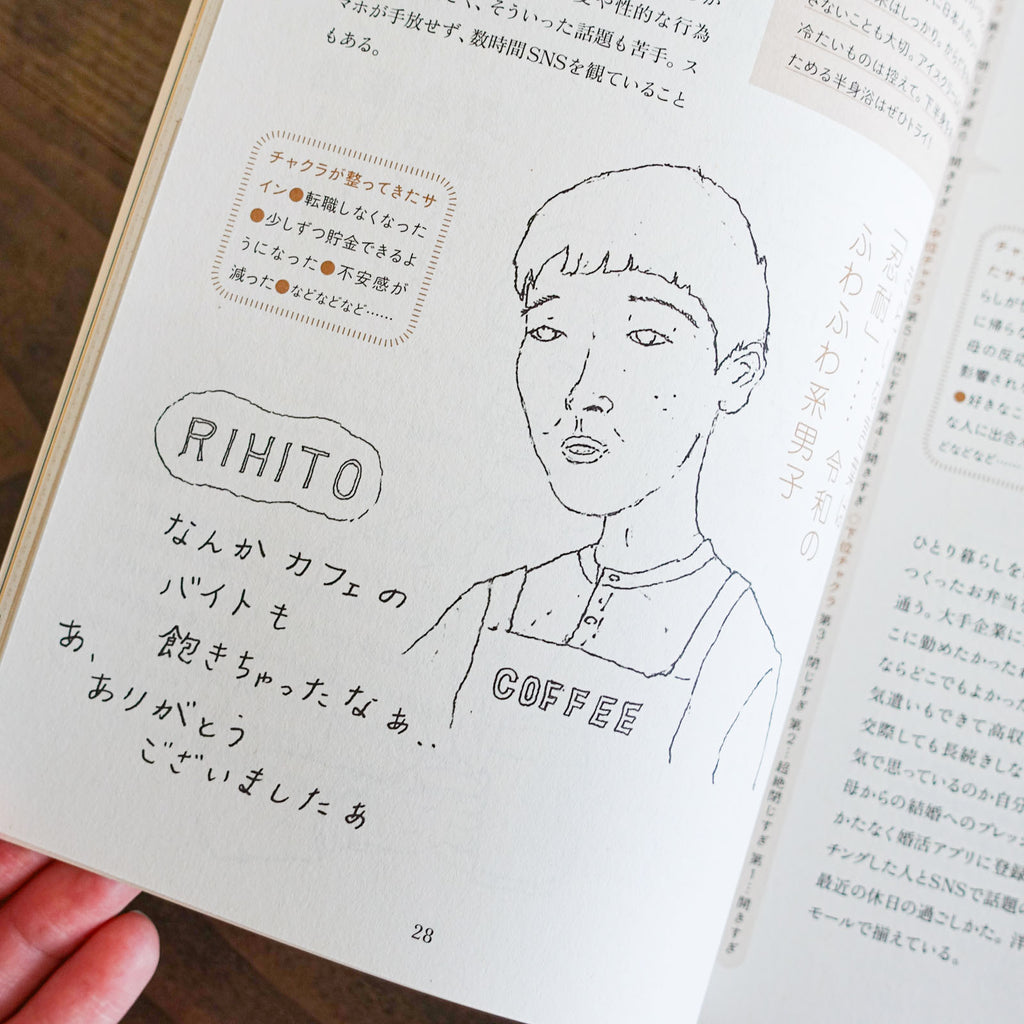 や性的な行為
、そういった話題も苦手。ス
マホが手放せず、数時間SNSを観ていること
もある。
冷たいものは控えて。下半身を
ためる半身浴はぜひトライ!
チャクラが整ってきたサ
イン●転職しなくなった
●少しずつ貯金できるよ
うになった●不安感が
減った●などなどなど……
「忍耐」……
令和の
ふわふわ系男子
RIHITO
なんか カフェの
バイトも
飽きちゃったなぁ..
あ、
ありがとう
ございましたぁ
COFFEE
28
第5…閉じすぎ 第4…開きすぎ ◇下位チャクラ 第3…閉じすぎ 第2…超絶閉じすぎ 第1…開きすぎ
たサ
らしが
に帰らな
母の反応
影響され
●好きなこ
な人に出会
どなどなど……
ひとり暮らしを
つくったお弁当
通う。大手企業に
こに勤めたかった
ならどこでもよかった
気遣いもできて高収
交際しても長続きしな
気で思っているのか自分
母からの結婚へのプレッシ
かたなく婚活アプリに登録
チングした人とSNSで話題の
最近の休日の過ごしかた。洋
モールで揃えている。